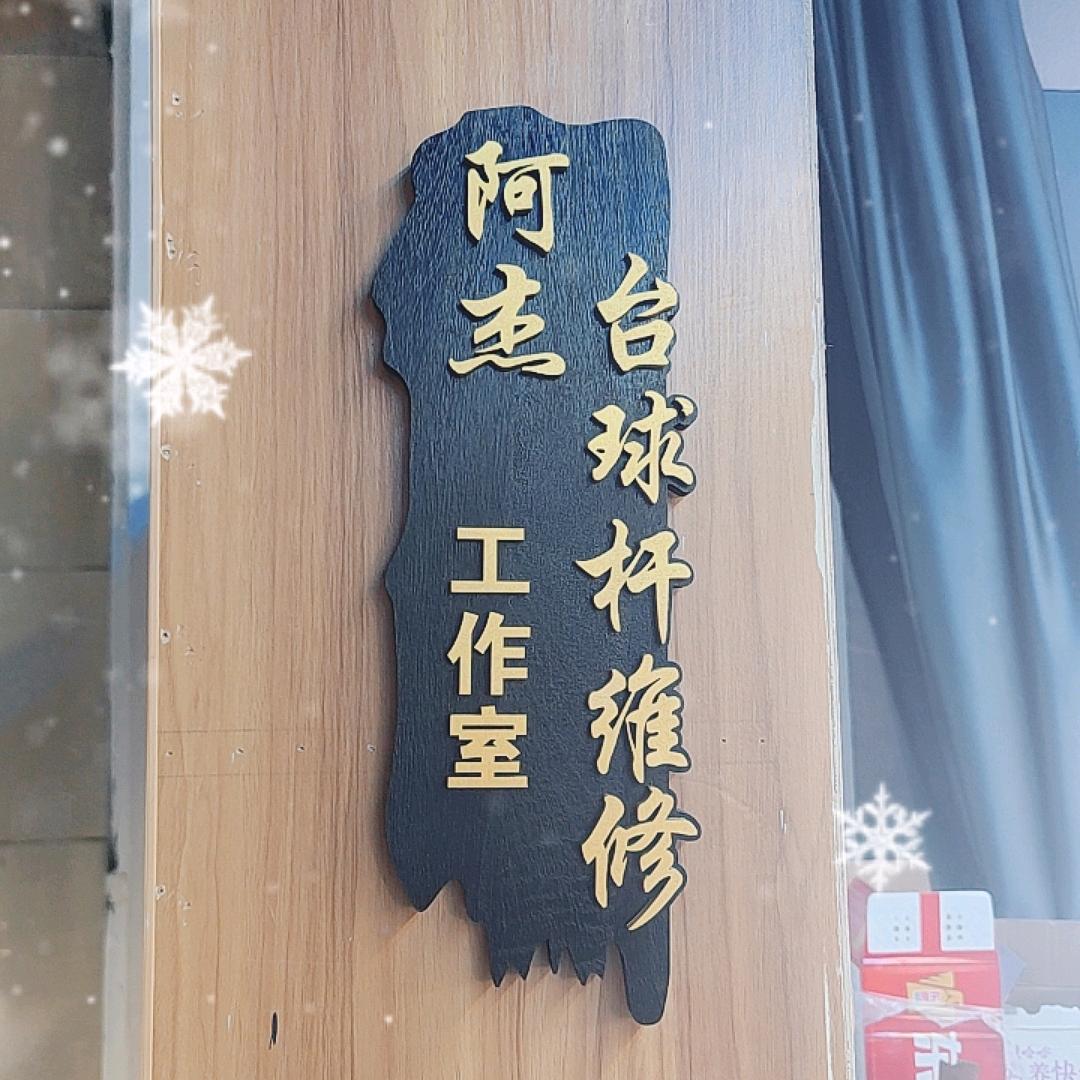 阿杰
工作室
台球杆维修
养快